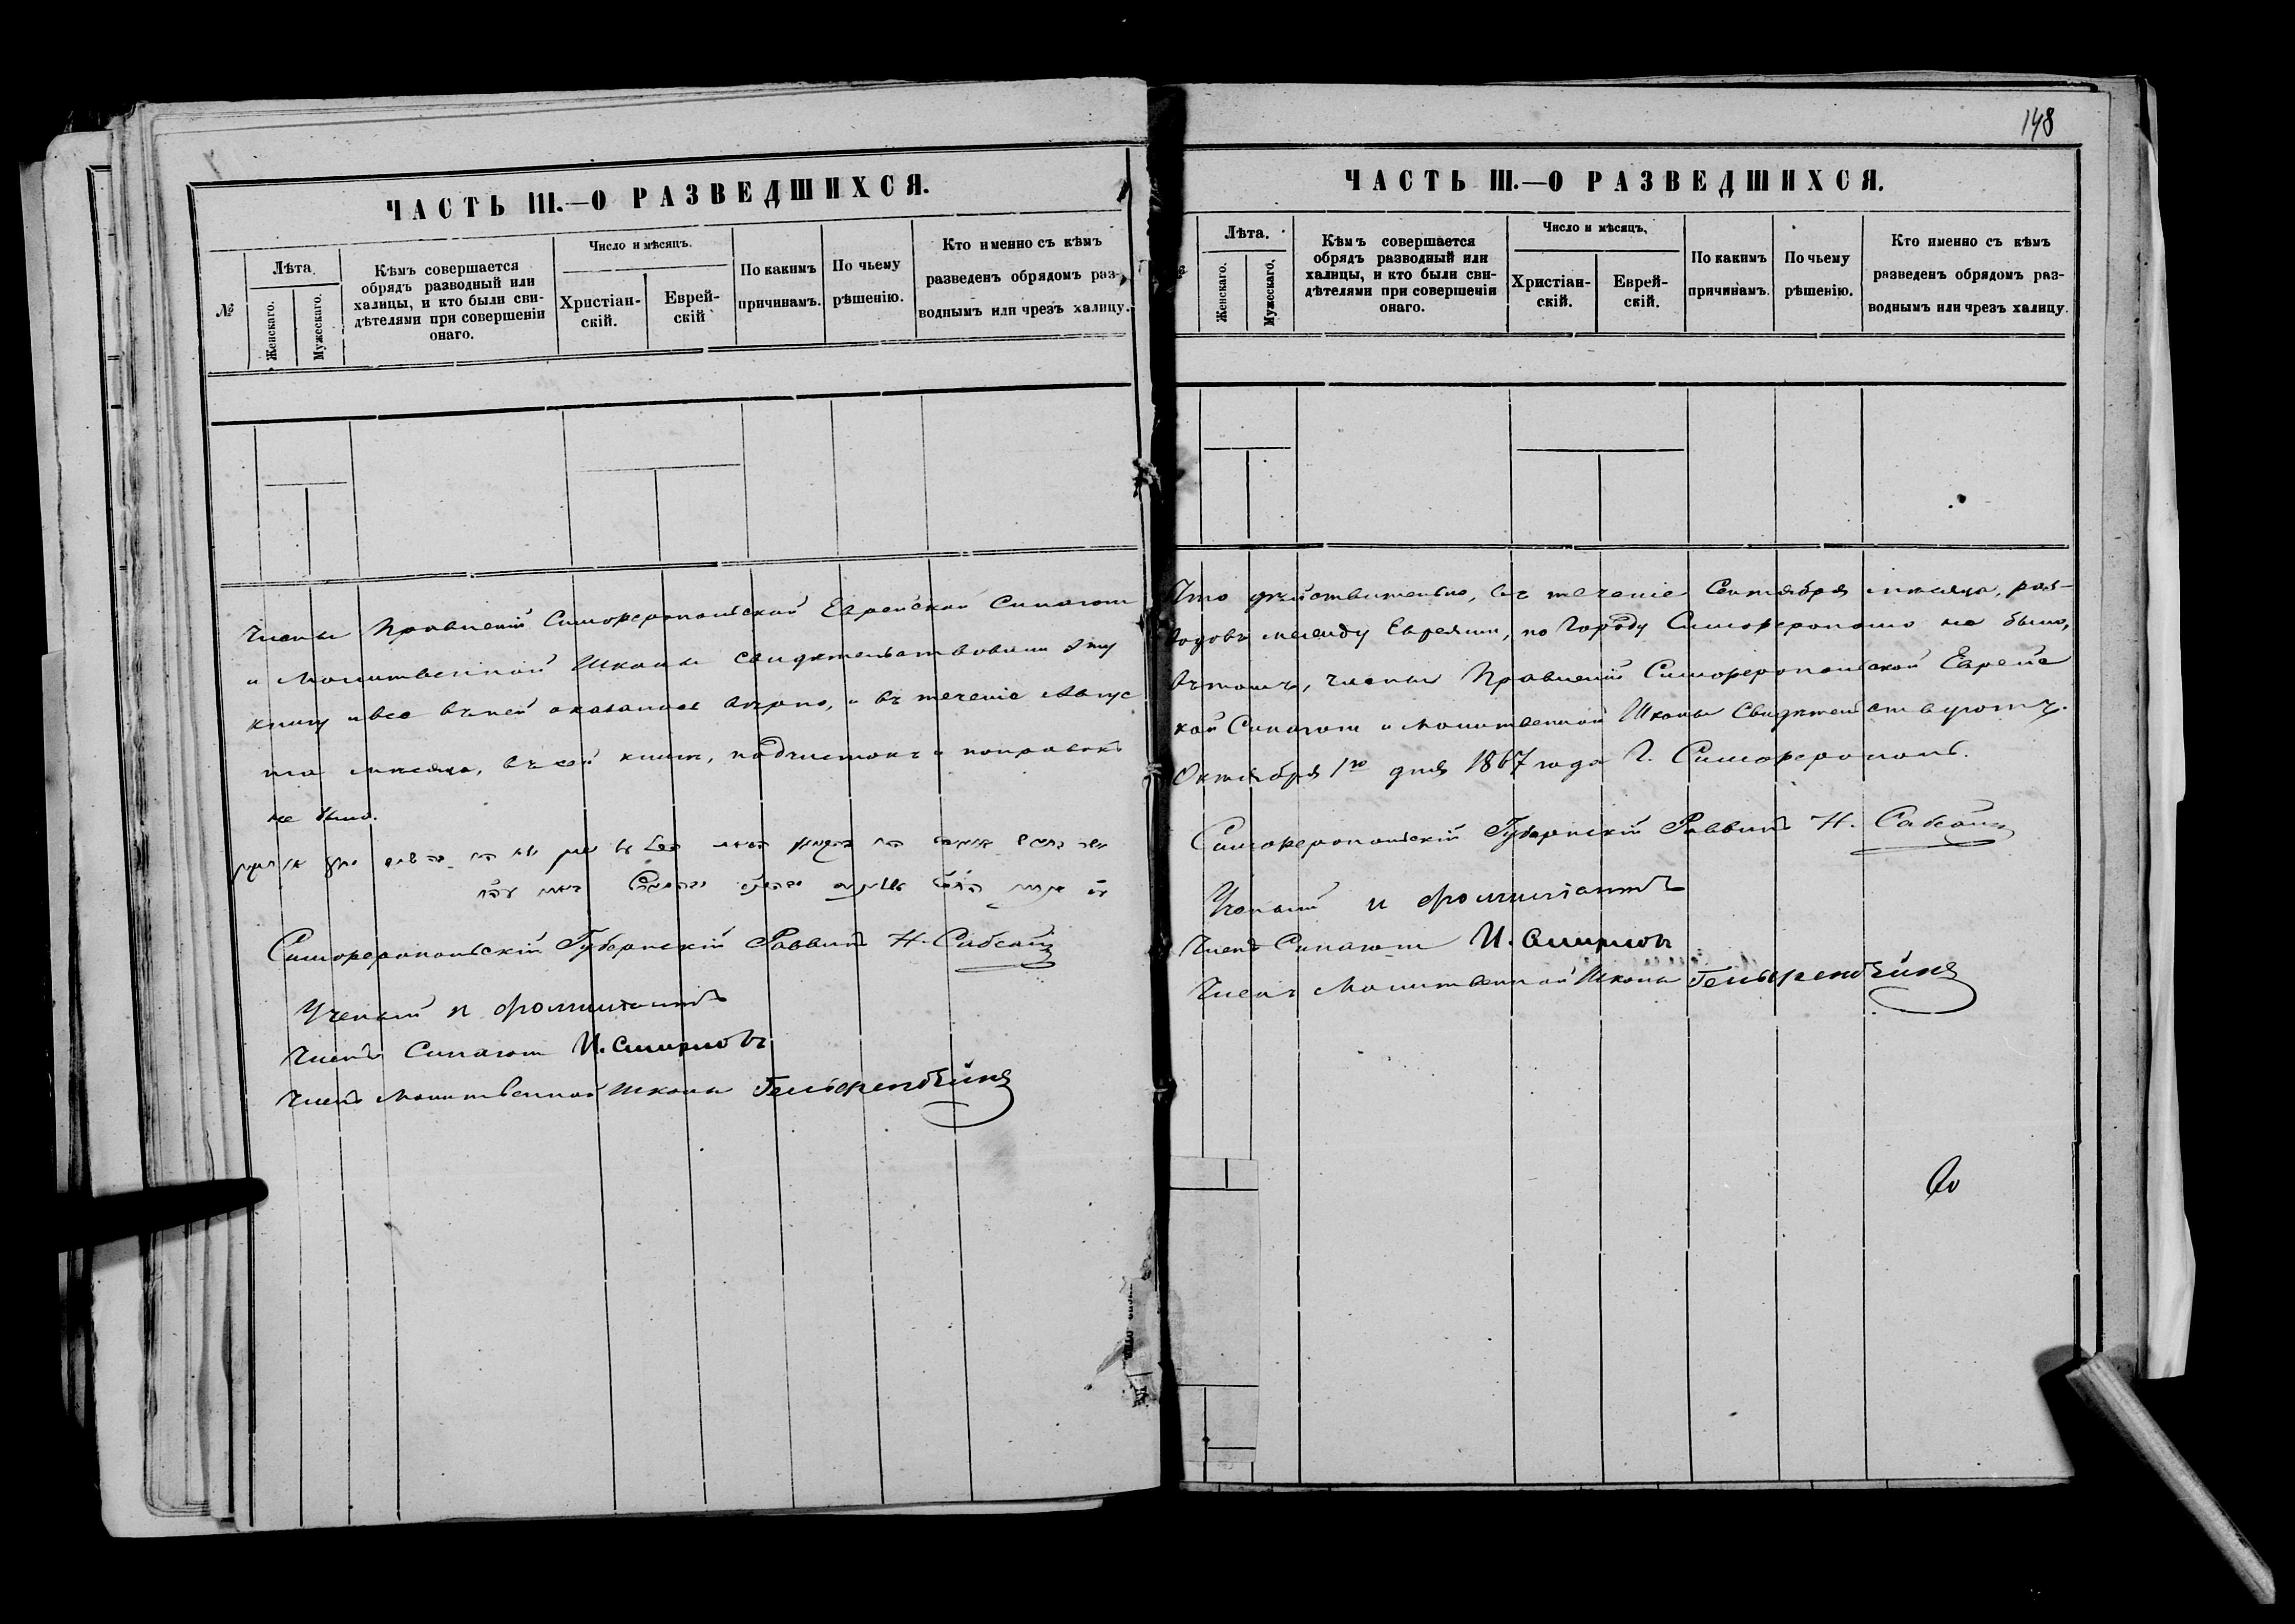 ЧАСТЬ III.—О РАЗВЕДШИХСЯ.
№
Лѣта
Женскаго.
Мужескаго.
Кѣмъ совершается
обрядъ разводный или
халицы, и кто были сви-
дѣтелями при совершеніи
онаго.
Число и мѣсяцъ.
Христіан-
скій.
Еврей-
скій
По какимъ
причинамъ.
По чьему
рѣшенію.
Кто именно съ кѣмъ
разведенъ обрядомъ раз-
воднымъ или чрезъ халицу.
Члены Правленій Симферопольской Еврейской Синагоги
и Молитвенной Школы свидѣтельствовали эту
книгу и все въ ней оказалось вѣрно, и въ теченіе Авгус
та мѣсяца, въ сей книгѣ, подчистокъ и поправокъ
не было.
Симферопольскій Губернскій Раввинъ Н.
Ученый и
Членъ Синагоги И. Смирновъ
Членъ Молитвенной Школы Гельфендбейнъ
148
ЧАСТЬ III.—О РАЗВЕДШИХСЯ.
Лѣта.
Женскаго.
Мужескаго.
Кѣмъ совершается
обрядъ разводный или
халицы, и кто были сви-
дѣтелями при совершеніи
онаго.
Число и мѣсяцъ.
Христіан-
скій.
Еврей-
скій.
По какимъ
причинамъ.
По чьему
рѣшенію.
Кто именно съ кѣмъ
разведенъ обрядомъ раз-
воднымъ или чрезъ халицу.
Что дѣйствительно, въ теченіе Сентября мѣсяца, раз-
водовъ между Евреями, по Городу Симферополю не было,
въ томъ, члены Правленій Симферопольской Еврейс
кой Синагоги и Молитвенной Школы Свидѣтельствуютъ.
Октября 1го дня 1867 года Г. Симферополь.
Симферопольскій Губернскій Раввинъ Н.
Ученый и
Членъ Синагоги И. Смирновъ
Членъ Молитвенной Школы Гельфендбейнъ